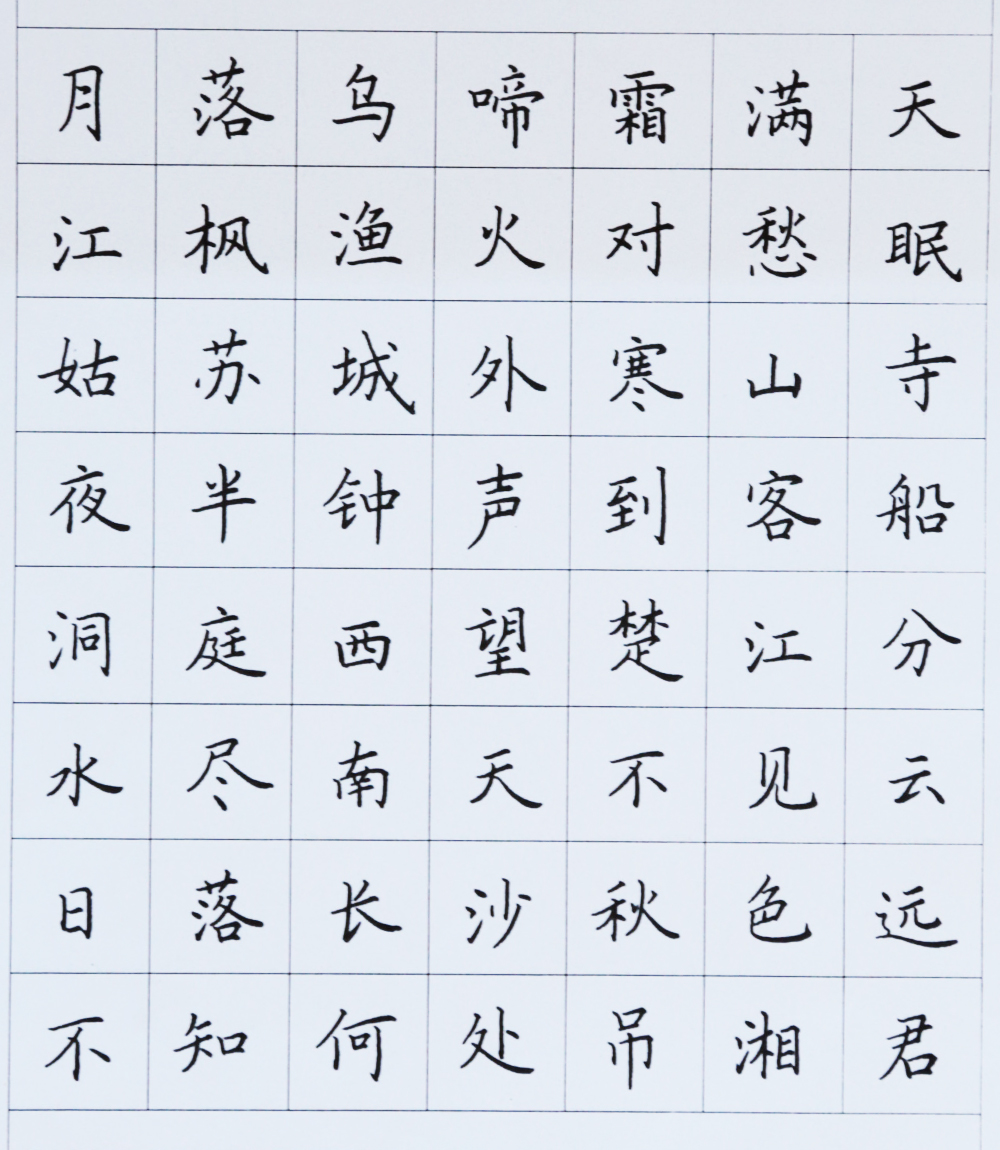 月落乌啼霜满天
江枫渔火对愁眠
姑苏城外寒山寺
夜半钟声到客船
洞庭西望楚江分
水尽南天不见云
日落长沙秋色远
不知何处吊湘君